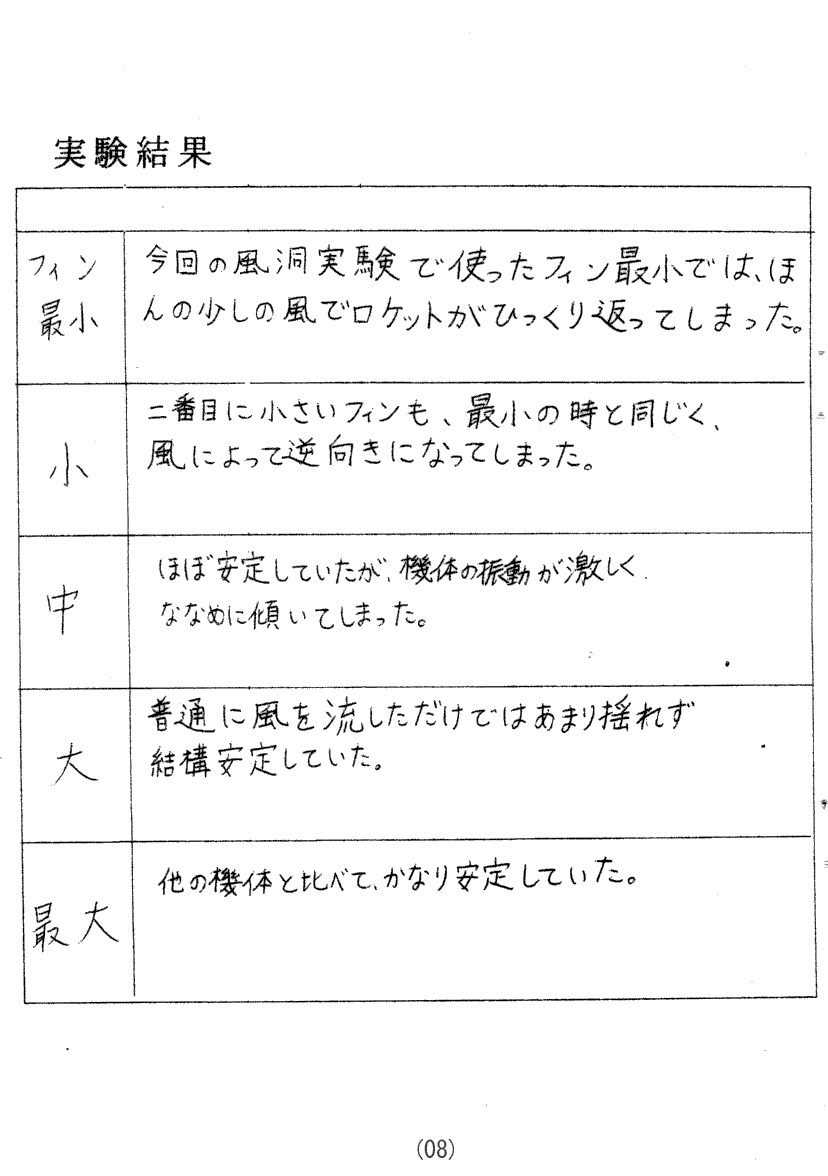 実験結果
フィン
最小
今回の風洞実験で使ったフィン最小では、ほ
んの少しの風でロケットがひっくり返ってしまった。
小
二番目に小さいフィンも、最小の時と同じく、
風によって逆向きになってしまった。
中
ほぼ安定していたが、機体の振動が激しく
ななめに傾いてしまった。
大
普通に風を流しただけではあまり揺れず
結構安定していた。
最大
他の機体と比べて、かなり安定していた。
(08)